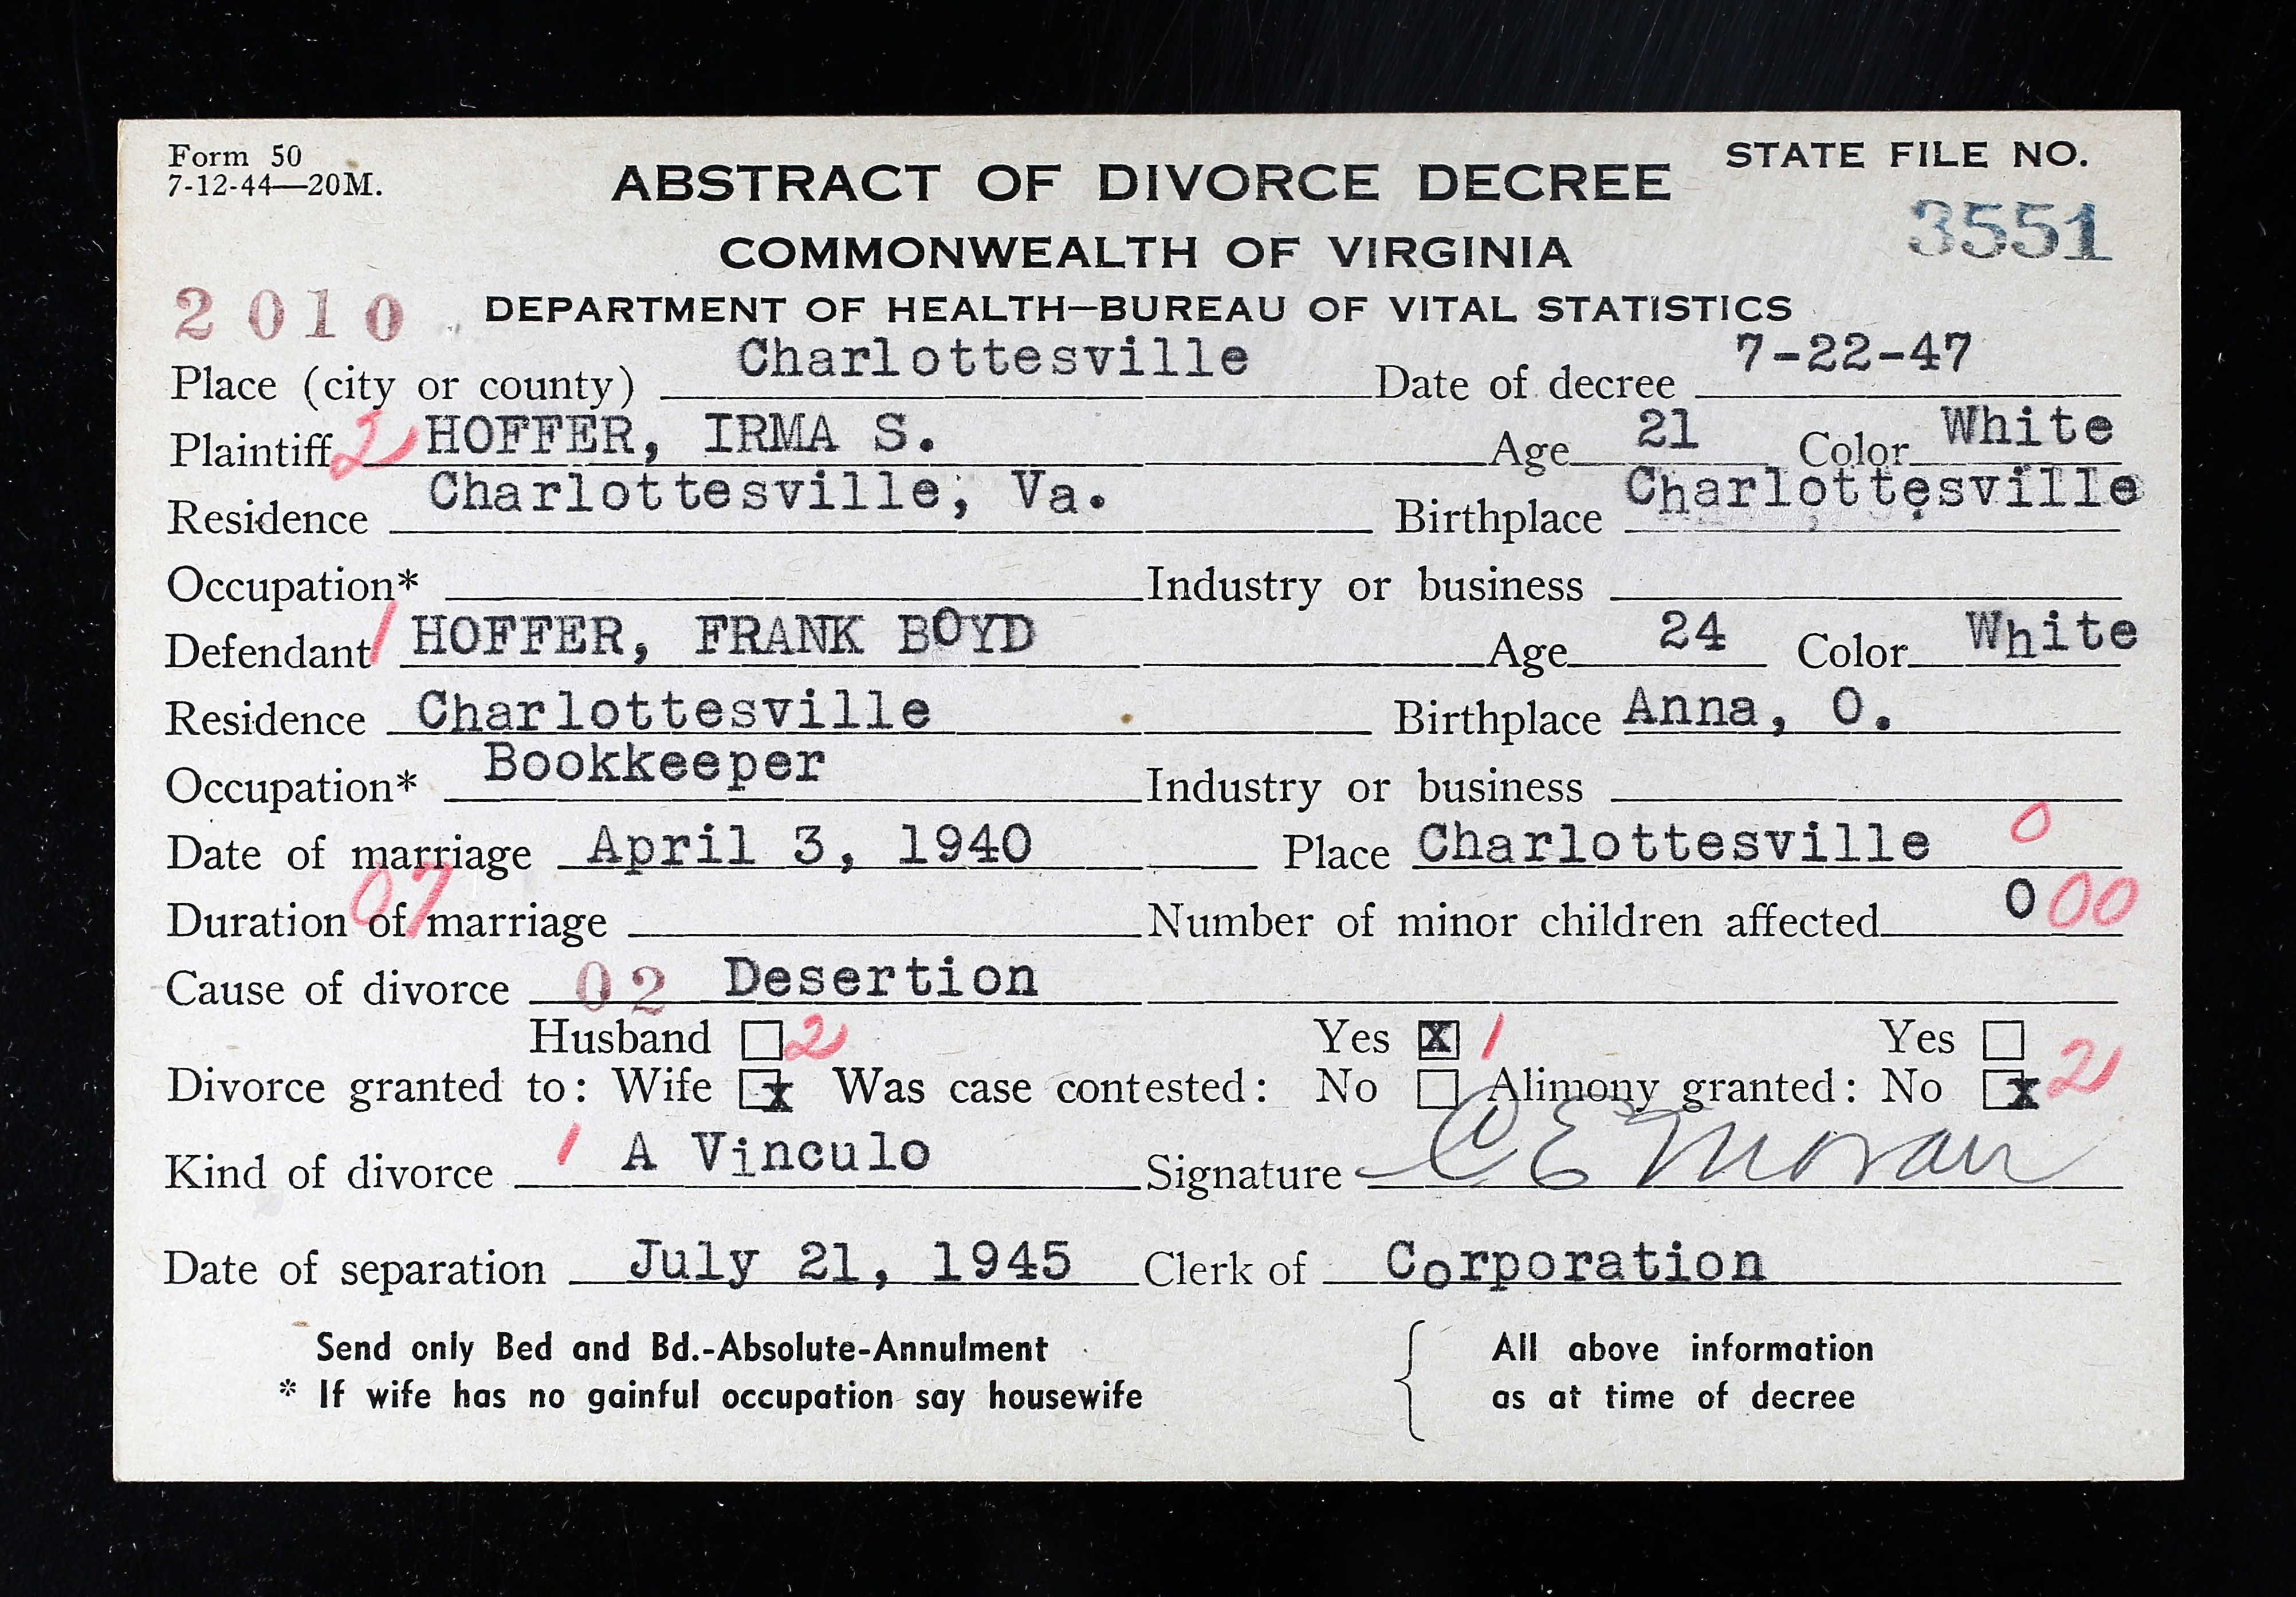 Form 50
7-12-44—20M.
STATE FILE NO.
ABSTRACT OF DIVORCE DECREE
3551
COMMONWEALTH OF VIRGINIA
2010 DEPARTMENT OF HEALTH—BUREAU OF VITAL STATISTICS
Place (city or county) Charlottesville Date of decree 7-22-47
Plaintiff 2 HOFFER, IRMA S. Age 21 Color White
Residence Charlottesville, Va. Birthplace Charlottesville
Occupation* Industry or business
Defendant 1 HOFFER, FRANK BOYD Age 24 Color White
Residence Charlottesville Birthplace Anna, O.
Occupation* Bookkeeper Industry or business
Date of marriage April 3, 1940 Place Charlottesville 0
Duration of marriage 07 Number of minor children affected 0 00
Cause of divorce 02 Desertion
Husband 2 Yes X 1 Yes
Divorce granted to: Wife x Was case contested: No Alimony granted: No x 2
Kind of divorce 1 A Vinculo Signature C E Moran
Date of separation July 21, 1945 Clerk of Corporation
Send only Bed and Bd.-Absolute-Annulment All above information
* If wife has no gainful occupation say housewife as at time of decree